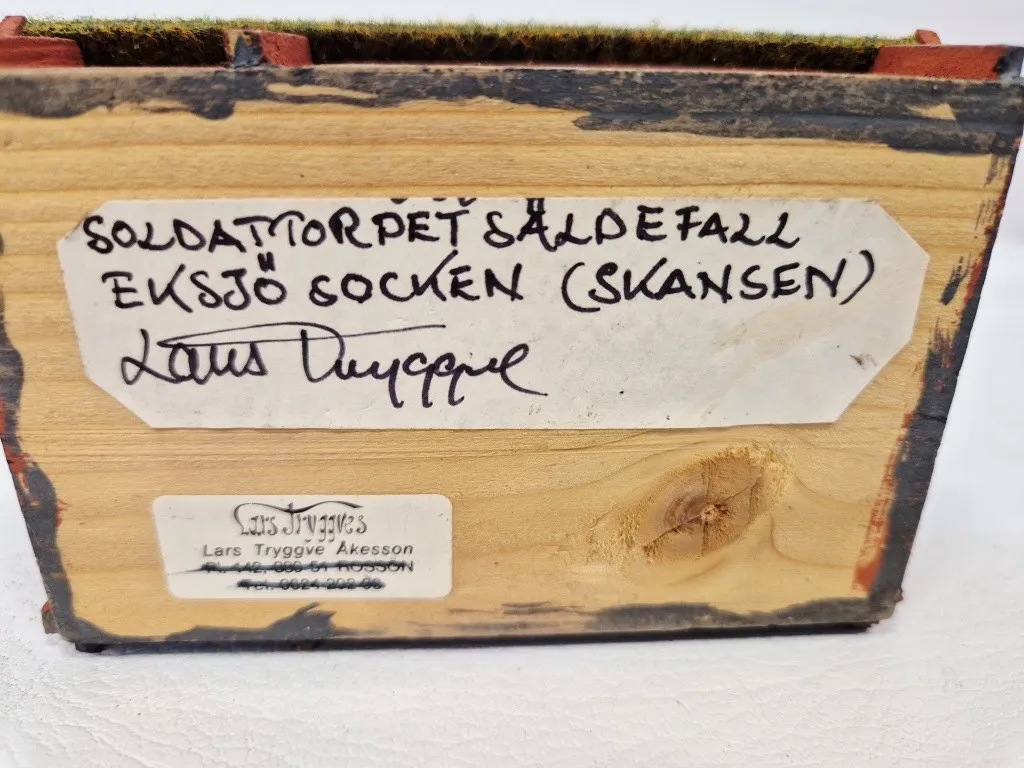 SOLDATTORPET SÄLDEFALL
EKSJÖ SOCKEN (SKANSEN)
Lars Tryggve
Lars Tryggves
Lars Tryggve Åkesson
Pl. 442, 880 51 ROSSÖN
Tel. 0624 202 96